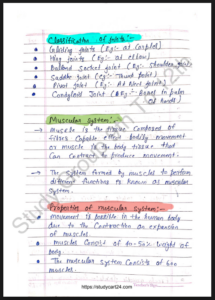 Classification of joints:-
Gliding joints (Eg:- at carples)
Hing joints (Eg:- at elbow)
Ball and Socket joint (Eg:- Shoulder
Saddle joint (Eg:- Thumb joint)
Pivot joint (Eg:- At Neck joints)
Condyloid Joint (Eg:- Equal in palm
of hands)
Muscular System:-
→ Muscle is the tissue composed of
fibers capable effect bodily movement
or muscle is the body tissue that
can contract to produce movement.
→ The system formed by muscles to perform
different functions is known as muscular
system.
Properties of muscular system:-
movement is possible in the human body
due to the contraction or expansion
of muscles.
muscles consist of 40-50% weight of
body.
The muscular system consists of 600
muscles.
Study cart 24.com
https://studycart24.com